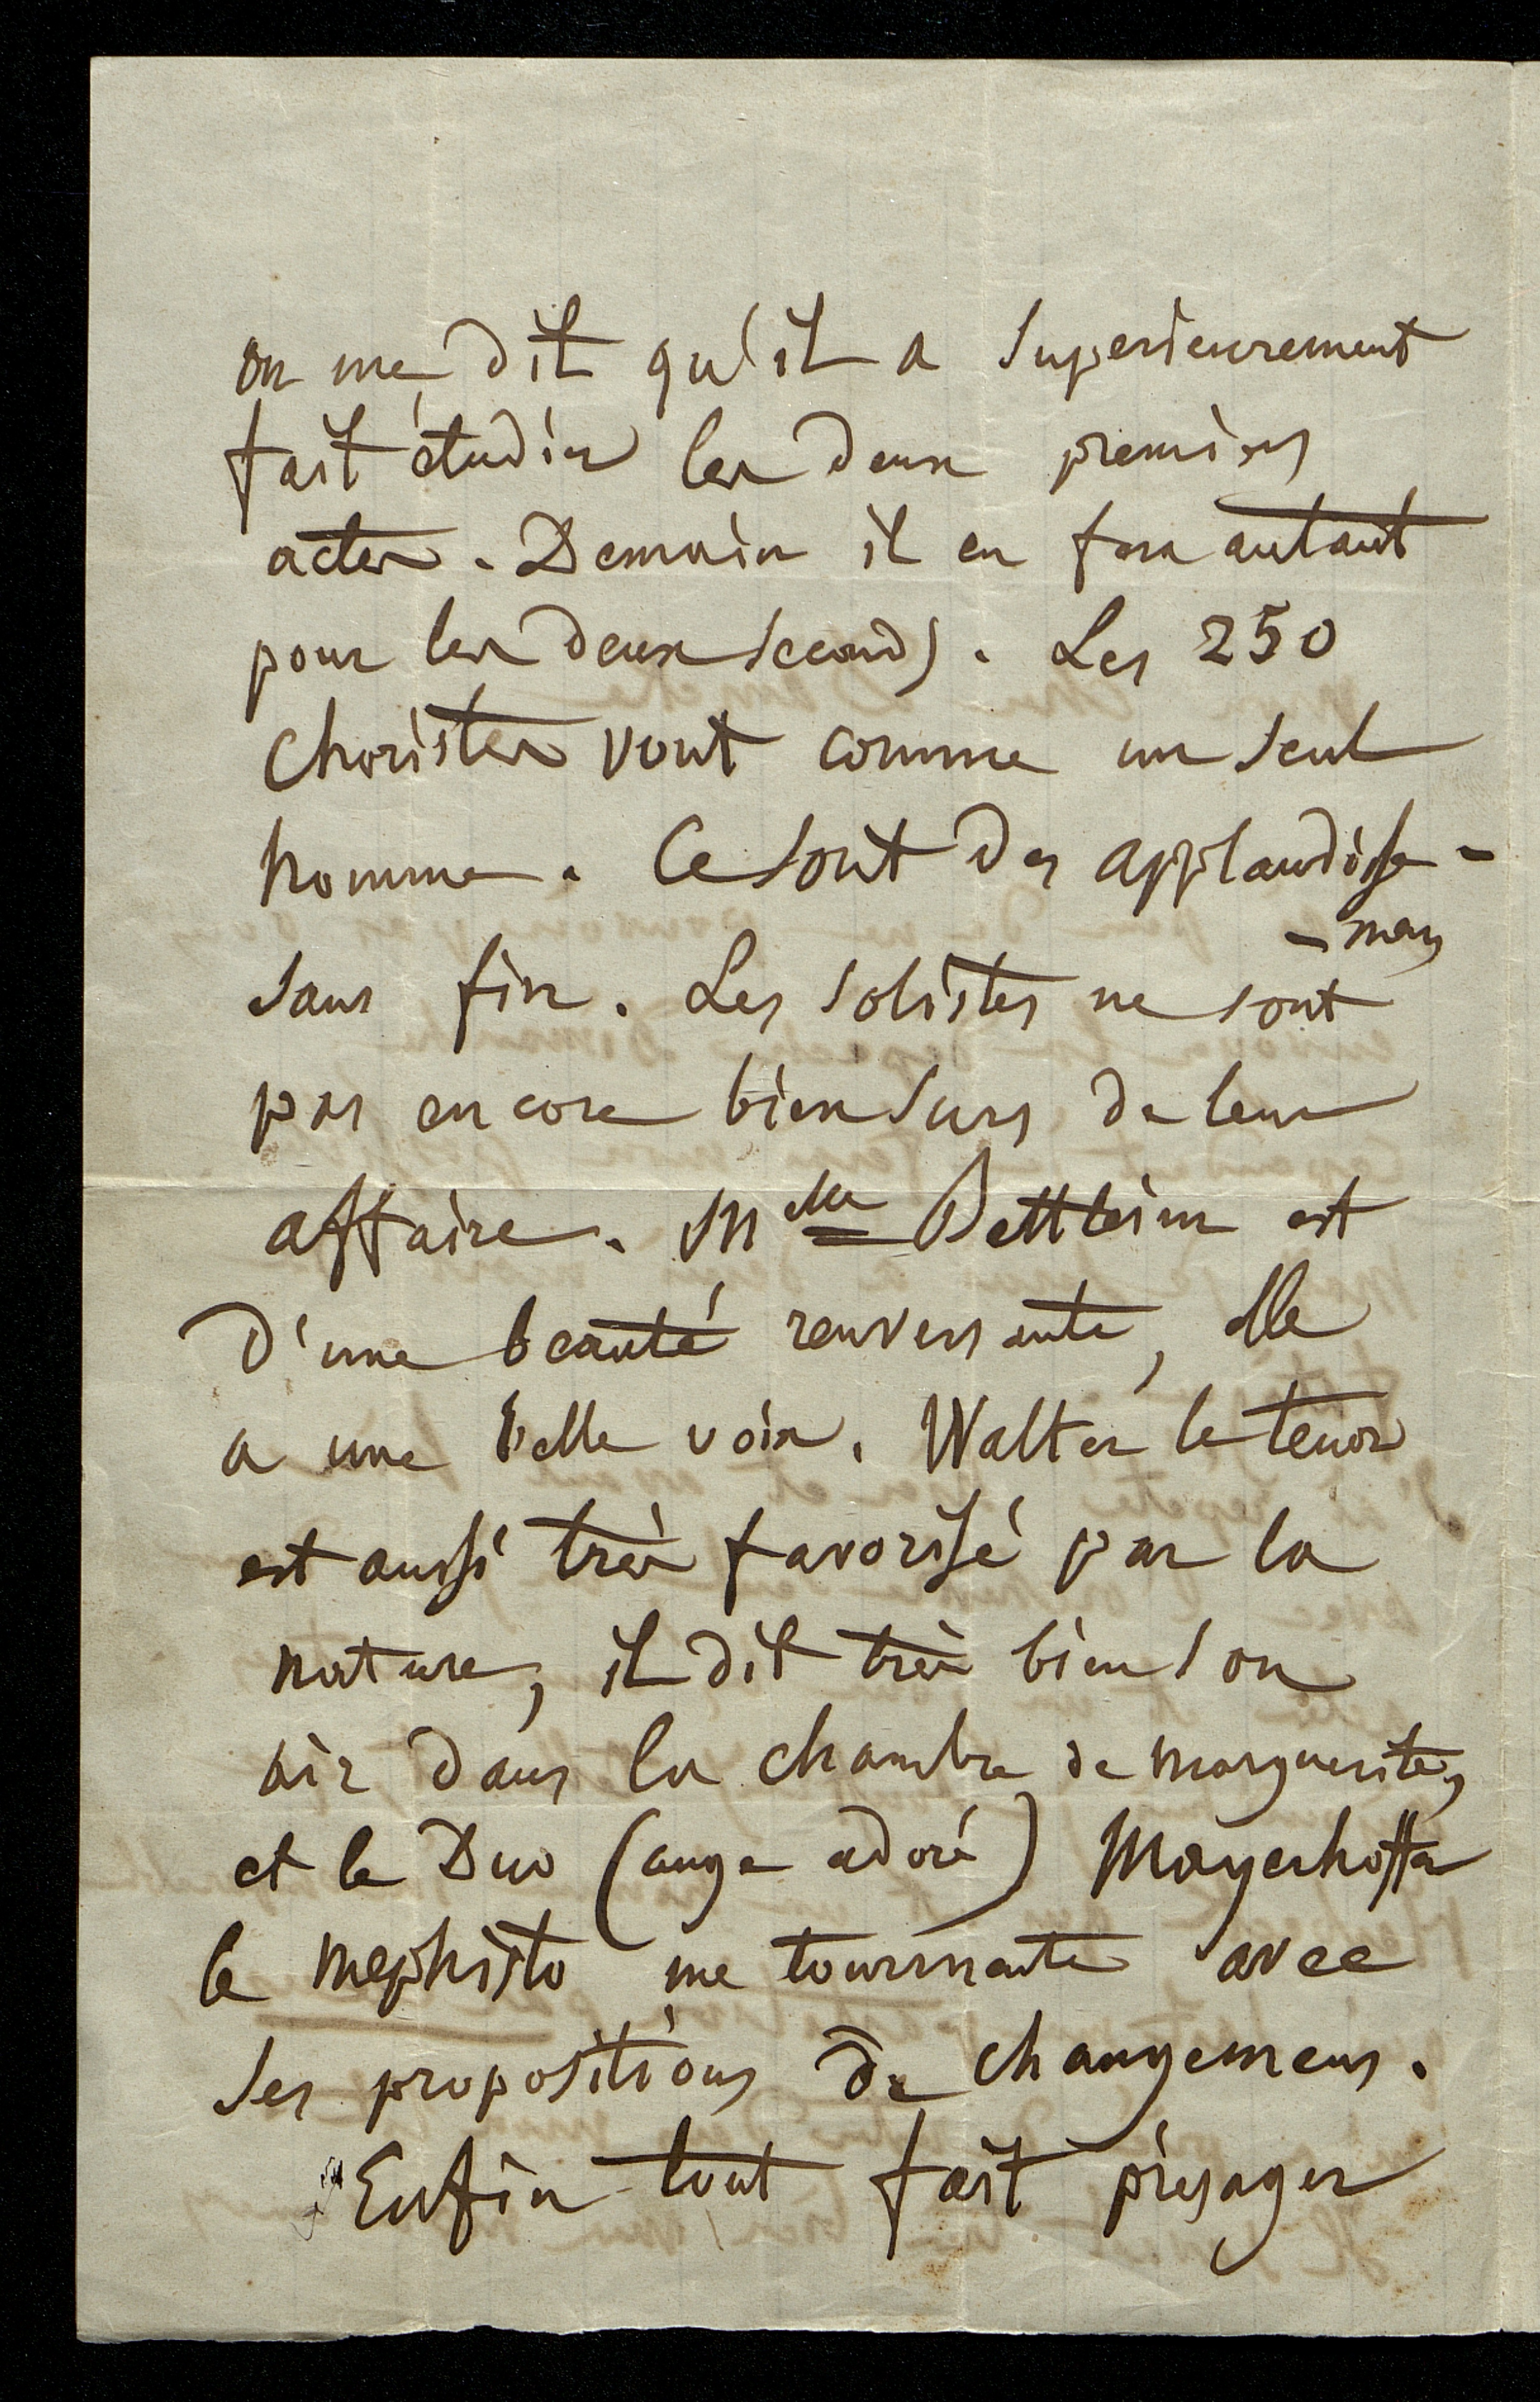 on me dit qu'il a superieurement
fait étudier les deux premiers
actes. Demain il en fera autant
pour les deux seconds. Les 250
choristes vont comme un seul
homme. Ce sont des applaudisse-
-mens
sans fin. Les solistes ne sont
pas encore bien surs de leur
affaire. Mlle Bettleim est
d'une beauté renversante, elle
a une belle voix. Walter le tenor
est aussi très favorisé par la
nature, il dit très bien son
air dans la chambre de marguerite,
et le Duo (ange adoré) Mayerhoffer
le mephisto me tourmente avec
ses propositions de changemens.
Enfin tout fait présager